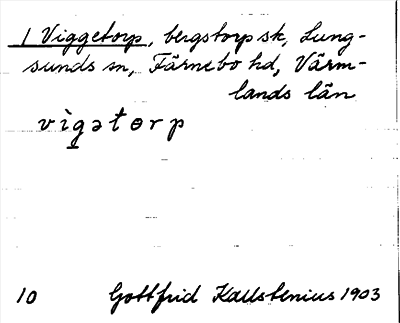 1 Viggetorp, bergstorp sk, Lung-
sunds sn, Färnebo hd, Värm-
lands län
vìgətɵrp
10 Gottfrid Kallstenius 1903